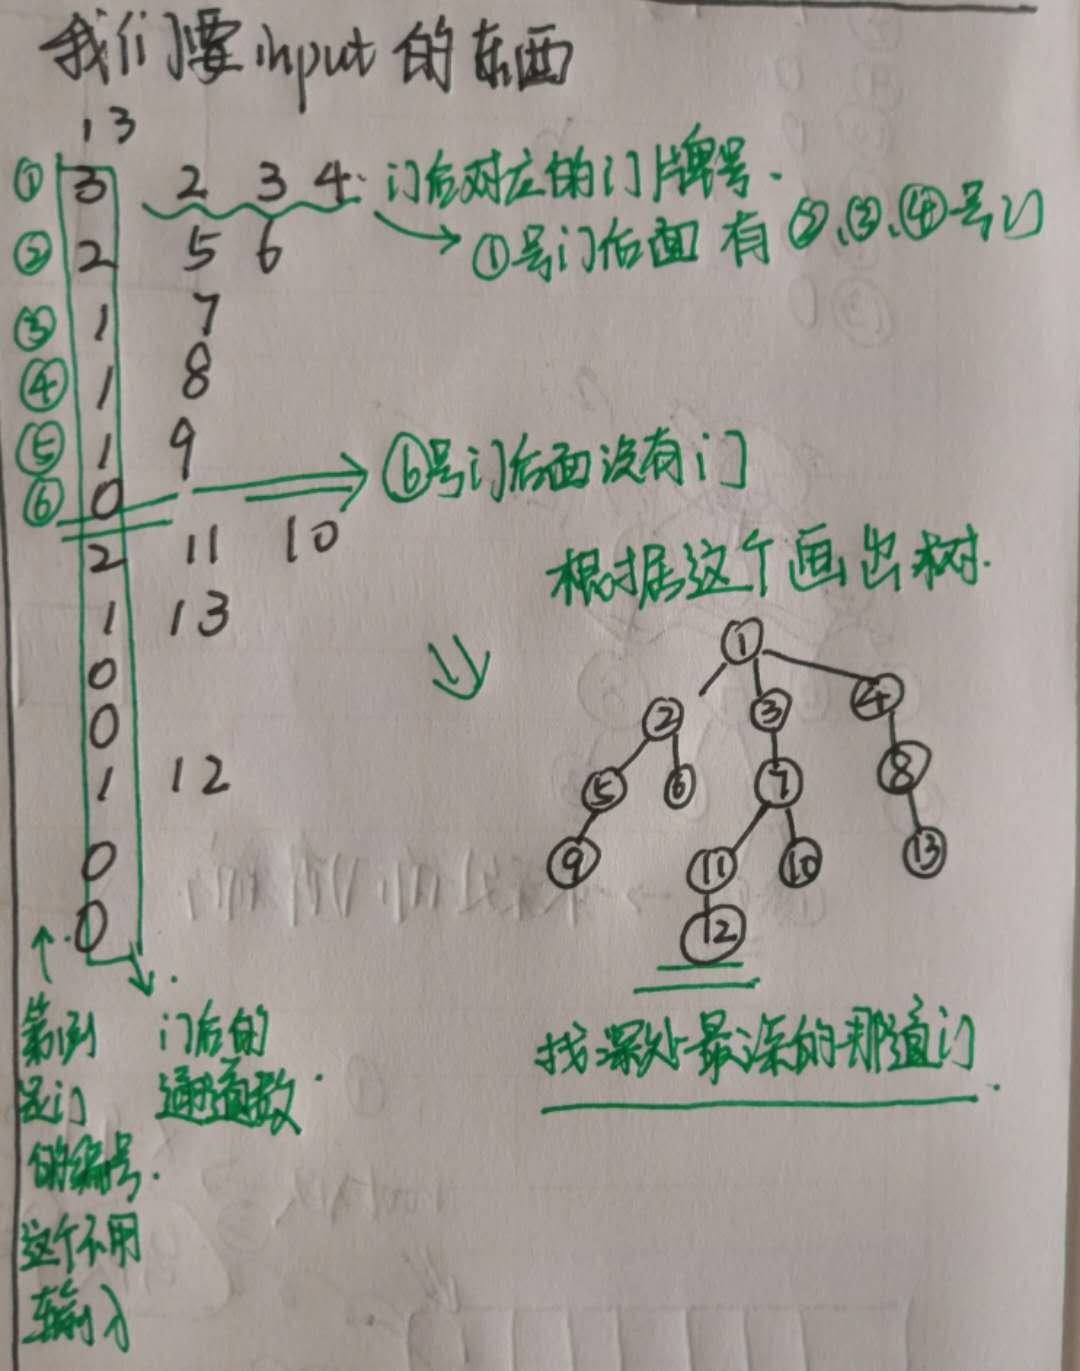 我们要input的东西
13
① 3 2 3 4 门后对应的门牌号.
② 2 5 6 ①号门后面有②、③、④号门
③ 1 7
④ 1 8
⑤ 1 9
⑥ 0 ⑥号门后面没有门
2 11 10
1 13
0
0
1 12
0
0
根据这个画出树.
①
② ③ ④
⑤ ⑥ ⑦ ⑧
⑨ ⑪ ⑩ ⑬
⑫
找深处最深的那道门
门后的
通道数.
是门
的编号.
这个不用
输入